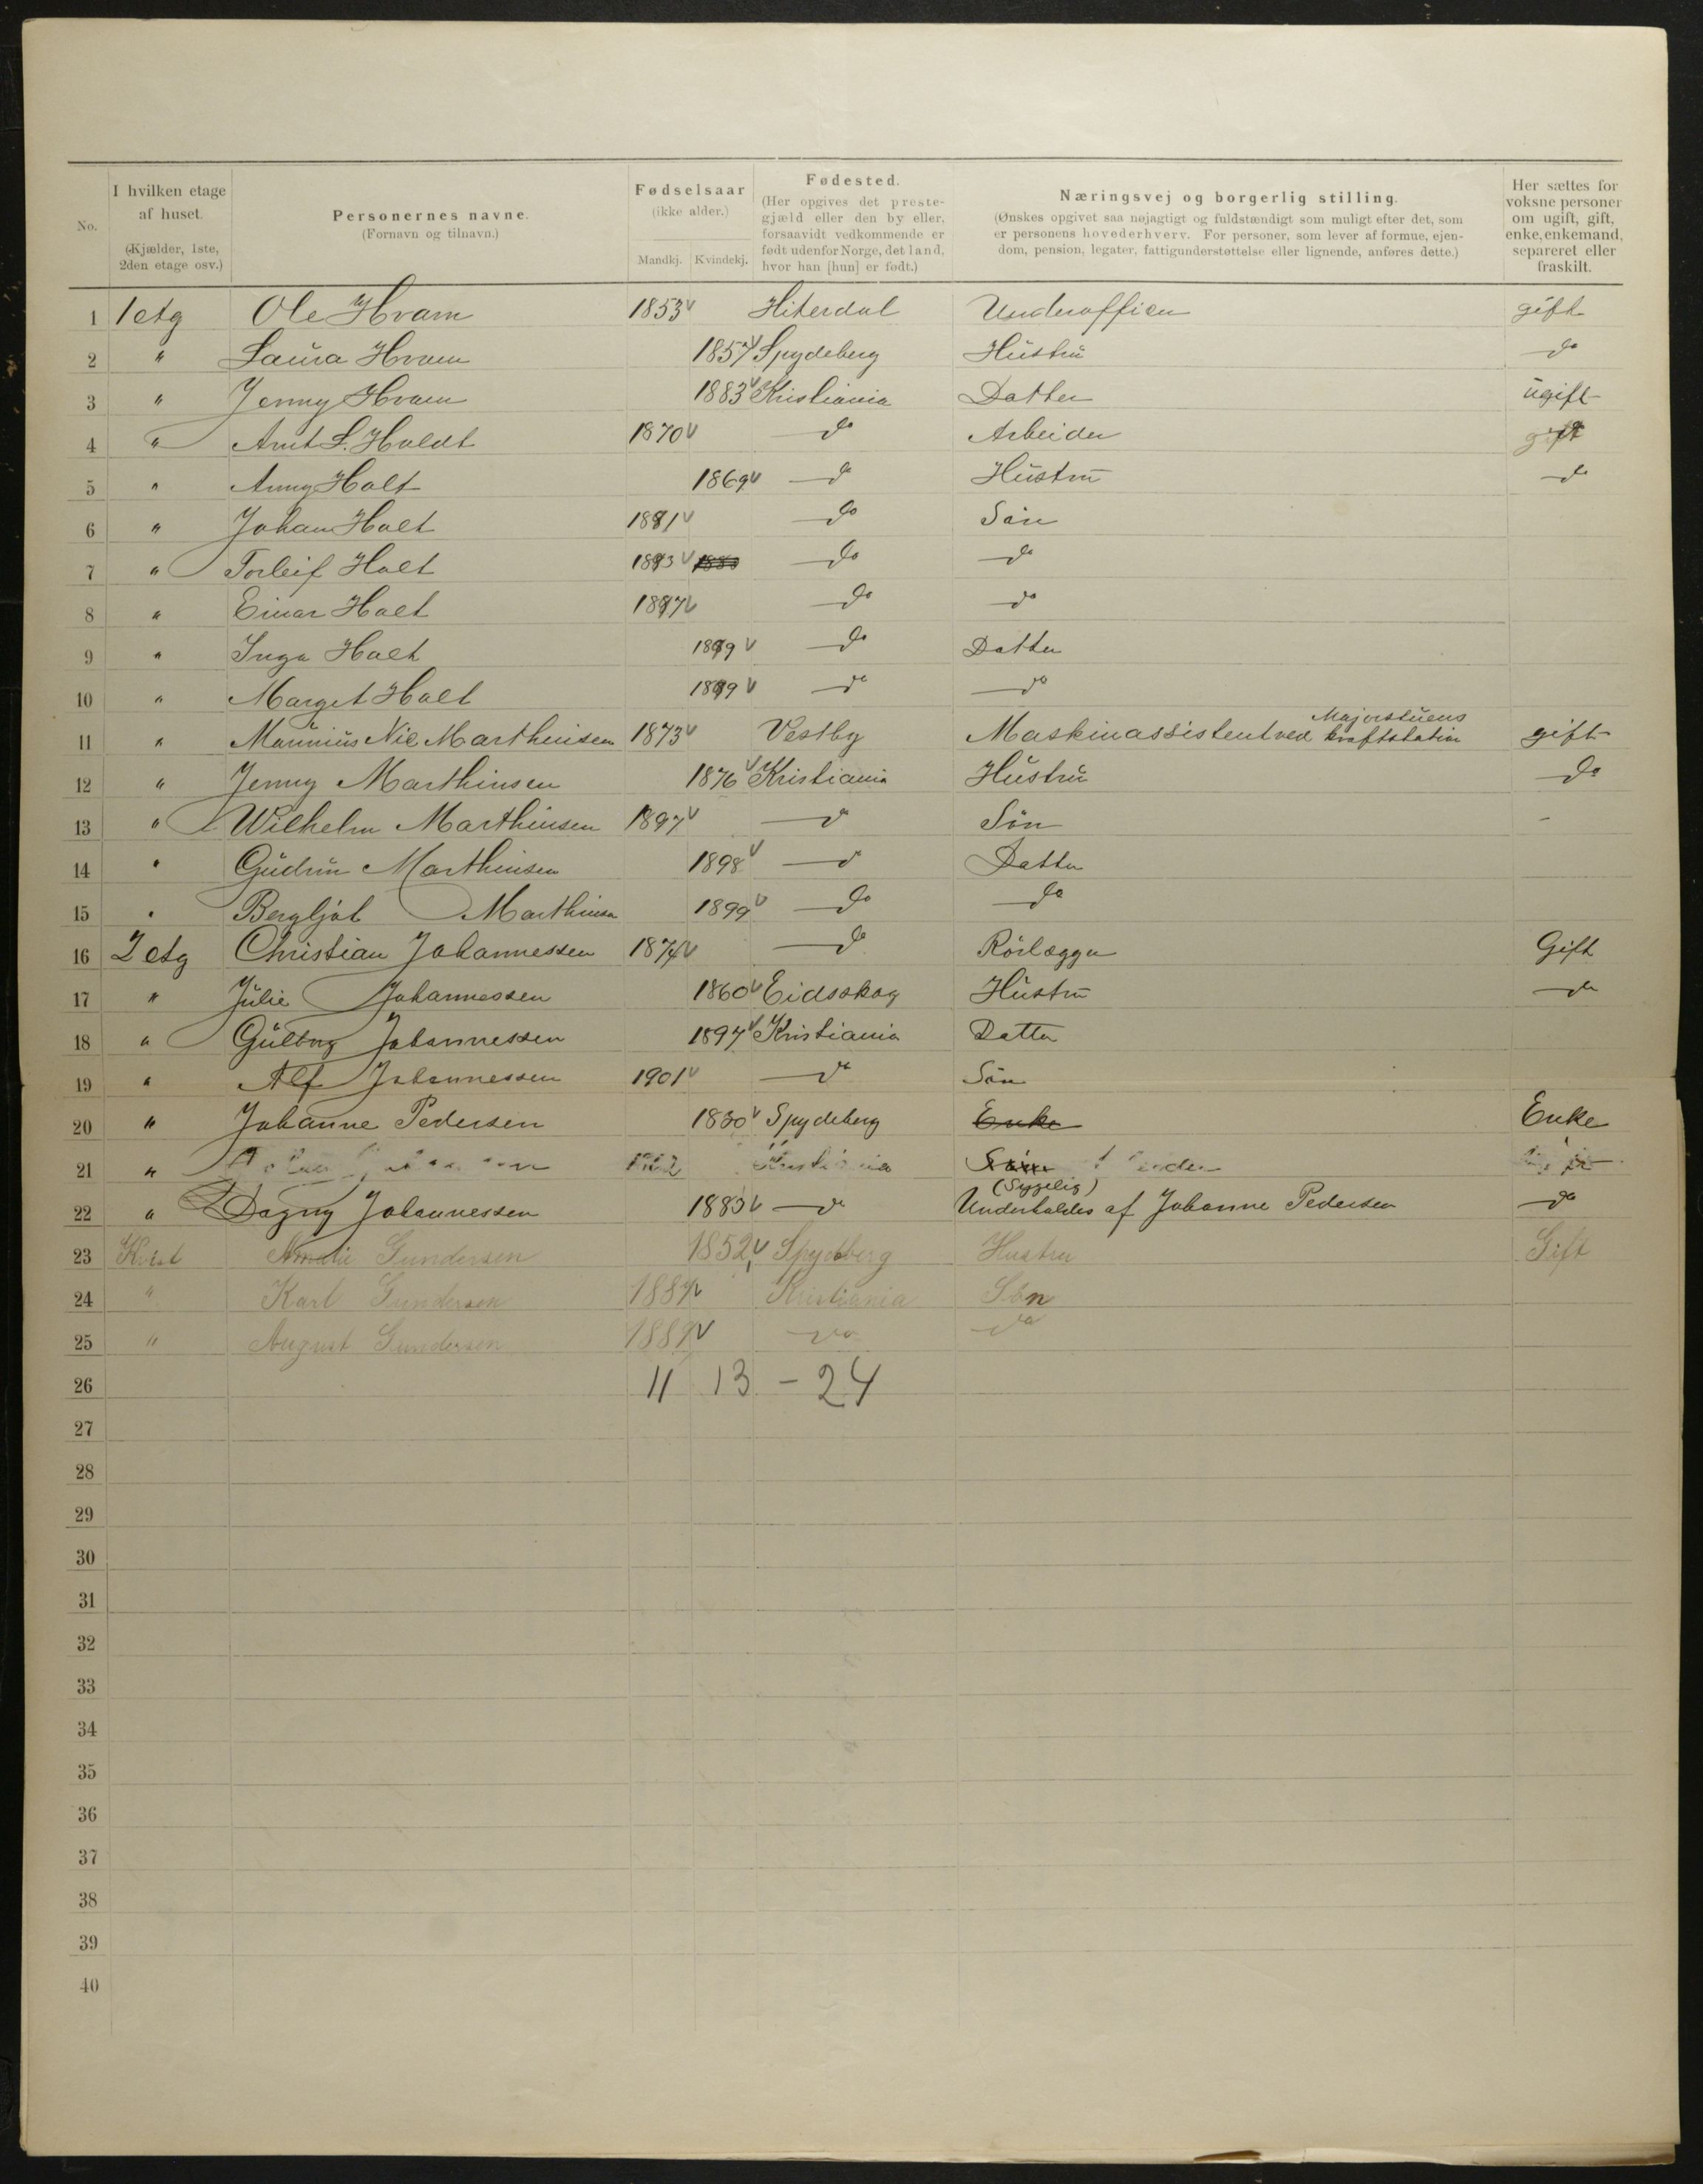 No. I hvilken etage af huset. (Kjælder, 1ste, 2den etage osv.) Personernes navne. (Fornavn og tilnavn.) Fødselsaar (ikke alder.) Mandkj. Kvindekj. Fødested. (Her opgives det prestegjæld eller den by eller, forsaavidt vedkommende er født udenfor Norge, det land, hvor han [hun] er født.) Næringsvej og borgerlig stilling. (Ønskes opgivet saa nøjagtigt og fuldstændigt som muligt efter det, som er personens hovederhverv. For personer, som lever af formue, ejendom, pension, legater, fattigunderstøttelse eller lignende, anføres dette.) Her sættes for voksne personer om ugift, gift, enke, enkemand, separeret eller fraskilt.
1 1 etg Ole Hvam 1853 v Hiterdal Underofficer gift
2 " Laura Hvam 1857 v Spydeberg Hustru do
3 " Jenny Hvam 1883 v Kristiania Datter ugift
4 " Arnt L. Holdt 1870 v do Arbeider gift
5 " Anny Holt 1869 v do Hustru do
6 " Johan Holt 1891 v do Sön
7 " Torleif Holt 1893 v do do
8 " Einar Holt 1897 v do do
9 " Inga Holt 1899 v do Datter
10 " Marget Holt 1899 v do do
11 " Nic Marthinsen 1873 v Vestby Maskinassistent ved Majorstuens kraftstation gift
12 " Jenny Marthinsen 1876 v Kristiania Hustru do
13 " Wilhelm Marthinsen 1897 v do Sön -
14 " Gudrun Marthinsen 1898 v do Datter
15 " Bergljot Marthinsen 1899 v do do
16 2 etg Christian Johannessen 1874 v do Rörlægger Gift
17 " Julie Johannessen 1860 v Eidsskog Hustru do
18 " Gulborg Johannessen 1897 v Kristiania Datter
19 " Alf Johannessen 1901 v do Sön
20 " Johanne Pedersen 1830 v Spydeberg Enke Enke
21 " Kristiania Sön
22 " Dagny Johannessen 1883 v do (Sygelig) Underholdes af Johanne Pedersen do
23 Kvist Amalie Gundersen 1852 v Spydeberg Hustru Gift
24 " Karl Gundersen 1887 v Kristiania Sön
25 " August Gundersen 1889 v do do
26 11 13 - 24
27
28
29
30
31
32
33
34
35
36
37
38
39
40